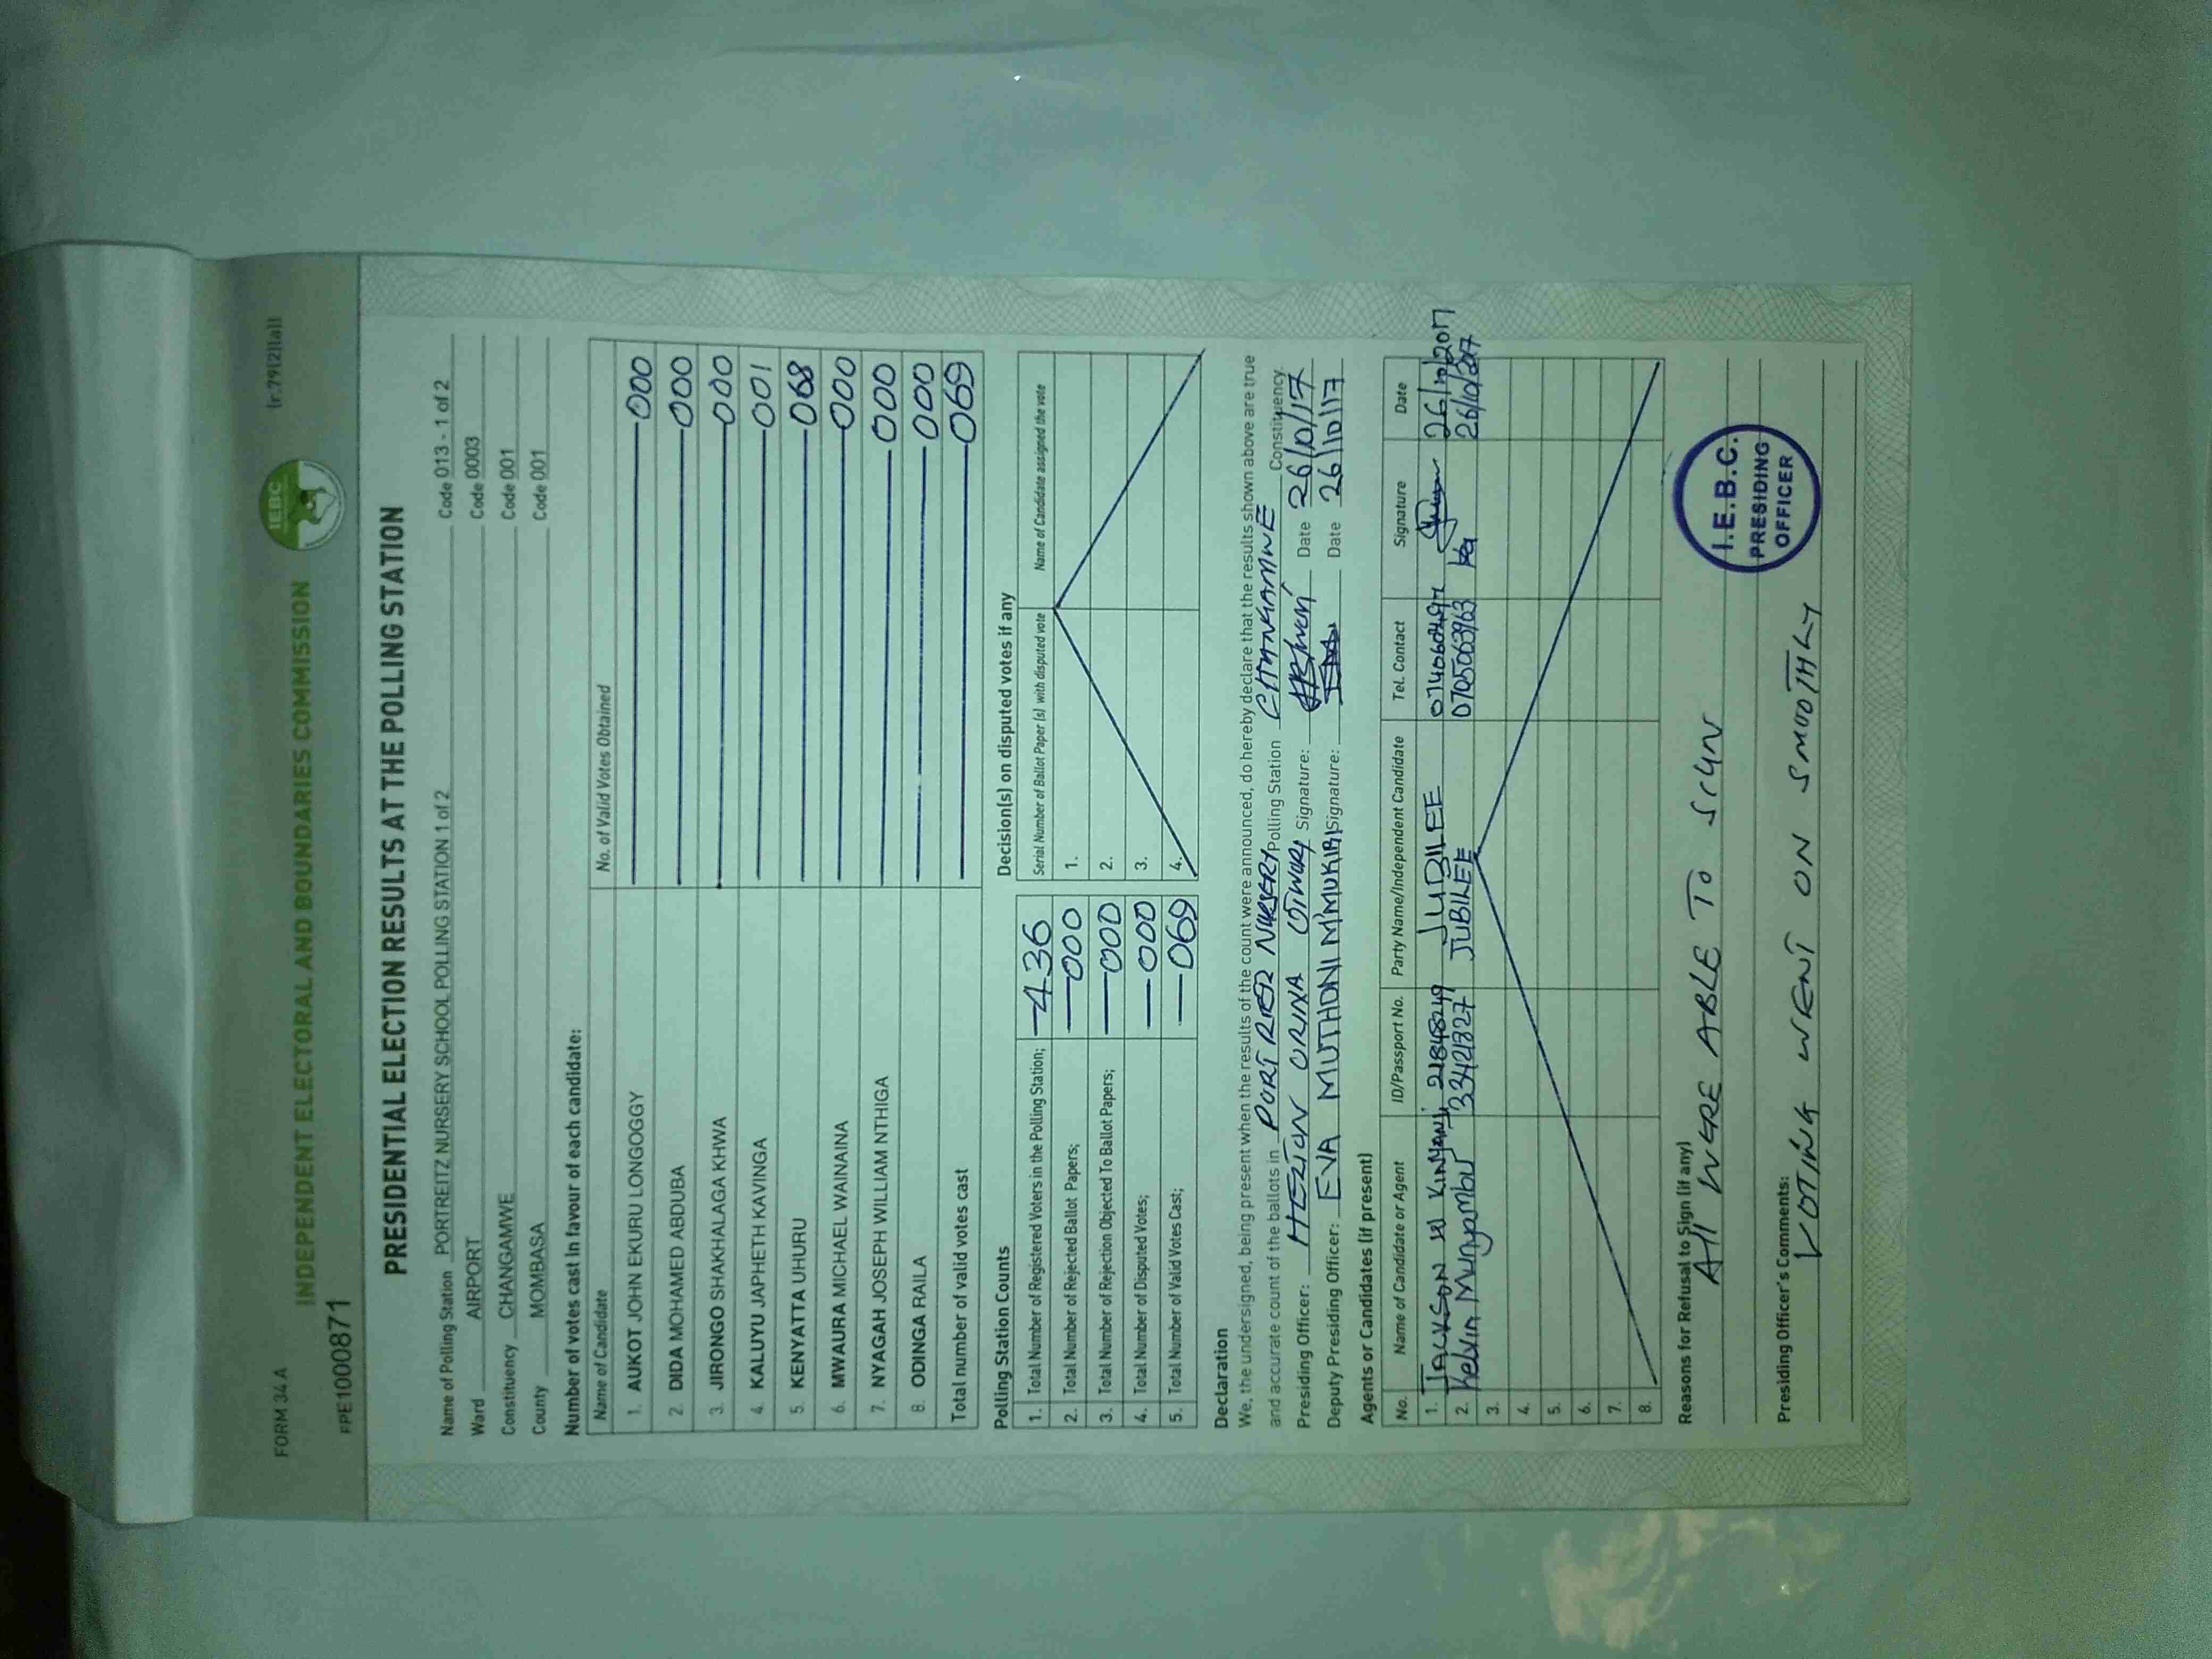 FORM 34 A
(r.79(2)(a))
INDEPENDENT ELECTORAL AND BOUNDARIES COMMISSION
IEBC
PPE1000871
PRESIDENTIAL ELECTION RESULTS AT THE POLLING STATION
Name of Polling Station PORTREITZ NURSERY SCHOOL POLLING STATION 1 of 2 Code 013 - 1 of 2
Ward AIRPORT Code 0003
Constituency CHANGAMWE Code 001
County MOMBASA Code 001
Number of votes cast in favour of each candidate:
Name of Candidate No. of Valid Votes Obtained
1. AUKOT JOHN EKURU LONGOGGY 000
2. DIDA MOHAMED ABDUBA 000
3. JIRONGO SHAKHALAGA KHWA 000
4. KALUYU JAPHETH KAVINGA 001
5. KENYATTA UHURU 068
6. MWAURA MICHAEL WAINAINA 000
7. NYAGAH JOSEPH WILLIAM NTHIGA 000
8. ODINGA RAILA 000
Total number of valid votes cast 069
Polling Station Counts
1. Total Number of Registered Voters in the Polling Station; 436
2. Total Number of Rejected Ballot Papers; 000
3. Total Number of Rejection Objected To Ballot Papers; 000
4. Total Number of Disputed Votes; 000
5. Total Number of Valid Votes Cast; 069
Decision(s) on disputed votes if any
Serial Number of Ballot Paper (s) with disputed vote Name of Candidate assigned the vote
1.
2.
3.
4.
Declaration
We, the undersigned, being present when the results of the count were announced, do hereby declare that the results shown above are true
and accurate count of the ballots in PORT REITZ NURSERY Polling Station CHANGAMWE Constituency.
Presiding Officer: HEZION Signature: Date 26/10/17
Deputy Presiding Officer: EVA MUTHONI M'MUKIRI Signature: Date 26/10/17
Agents or Candidates (if present)
No. Name of Candidate or Agent ID/Passport No. Party Name/Independent Candidate Tel. Contact Signature Date
1. JACKSON W KINYANJ JUBILEE 26/10/2017
2. Kelvin Munyambu 33421327 JUBILEE 0705063963 26/10/2017
3.
4.
5.
6.
7.
8.
Reasons for Refusal to Sign (if any)
All WERE ABLE TO SIGN
Presiding Officer's Comments:
VOTING WENT ON SMOOTHLY
I.E.B.C.
PRESIDING
OFFICER